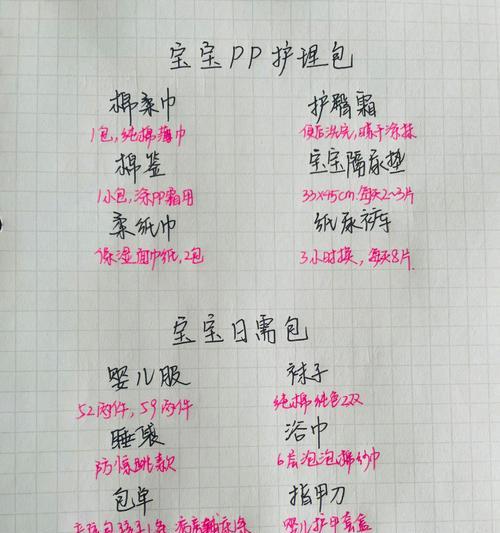 宝宝PP护理包
棉柔巾 护臀霜
1包,纯棉薄巾 便后洗完,晾干涂抹
棉签 宝宝隔尿垫
1小包,涂PP霜用 33x45cm.每天2~3片
柔纸巾 纸尿裤
保湿面巾纸,2包 3小时换,每天8片.
宝宝日需包
婴儿服 袜子
52两件,59两件 纯棉纯色2双
睡袋 浴巾
防惊跳款 6层泡泡棉纱巾
包单 指甲刀
婴儿护甲套盒